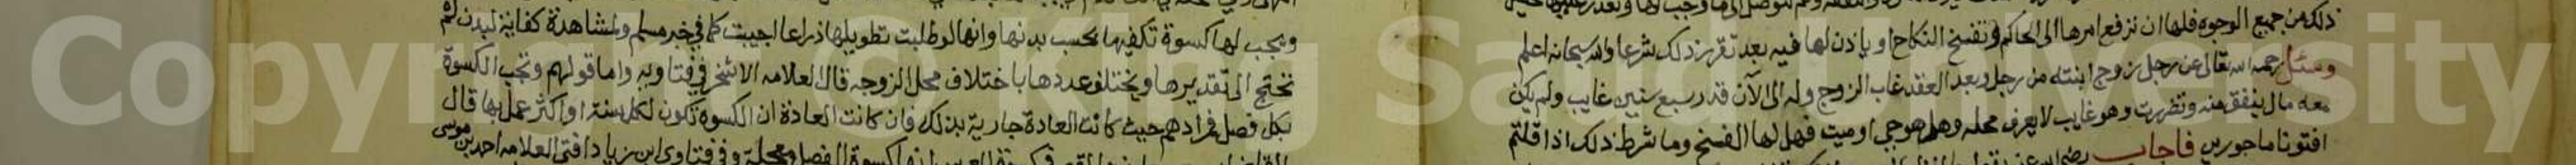 ذلك من جميع الوجوه فلها ان ترفع امرها الى الحاكم وتفسخ النكاح او ياذن لها فيه بعد تقرير ذلك شرعا والله سبحانه اعلم
وسئل رحمه الله تعالى عن رجل زوج ابنته من رجل وبعد العقد غاب الزوج وله الى الآن قدر سبع سنين غايب ولم يكن
معه مال ينفق منه وتضررت وهو غايب لا يعرف محله وهل هو حي او ميت فهل لها الفسخ وما شرط ذلك اذا قلتم
افتونا ماجورين فاجاب رضي الله عنه
ويجب لها كسوة تكفيها بحسب بدنها وانها لو طلبت تطويلها ذراعا اجيبت كما في خبر مسلم ولمشاهدة كفاية البدن لم
نحتج الى تقديرها ويختلف عددها باختلاف محل الزوجه قال العلامه الاشخر في فتاويه واما قولهم وتجب الكسوة
بكل فصل فمرادهم حيث كانت العادة جارية بذلك فان كانت العادة ان الكسوه تكون لكل سنة او اكثر عمل بها قال
كسوة الفصل وفي فتاوى ابن زياد افتى العلامه احمد بن موسى
Copyright © King Saud University